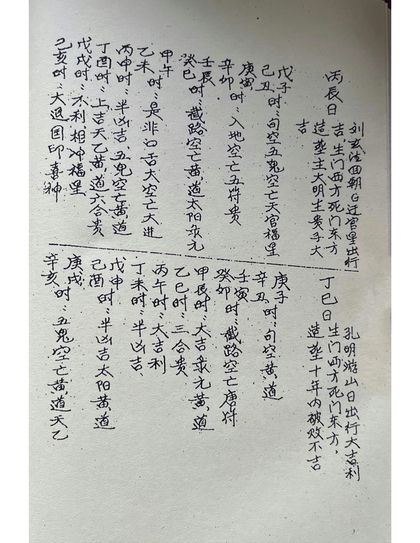 丙辰日
刘玄德回朝日迁官星出行
吉生门西方死门东方
造葬主大明生贵子大
吉
戊子时
己丑时:旬空五鬼空亡天官福星
庚寅时
辛卯时:入地空亡五符贵
壬辰
癸巳时:截路空亡黄道太阳彔元
甲午
乙未时:是非口舌大空亡大进
丙申时:半凶吉、五鬼空亡黄道
丁酉时:上吉天乙黄道六合贵
戊戌时:不利相冲福星
己亥时:大退园印喜神
丁巳日
孔明游山日出行大吉利
生门西方死门东方,
造葬十年内破败不吉
庚子时
辛丑时:旬空黄道
壬寅
癸卯时:截路空亡唐符
甲辰时:大吉彔元黄道
乙巳时:三合贵
丙午时:大吉利
丁未时:半凶吉、
戊申
己酉时:半凶吉太阳黄道
庚戌
辛亥时:五鬼空亡黄道天乙